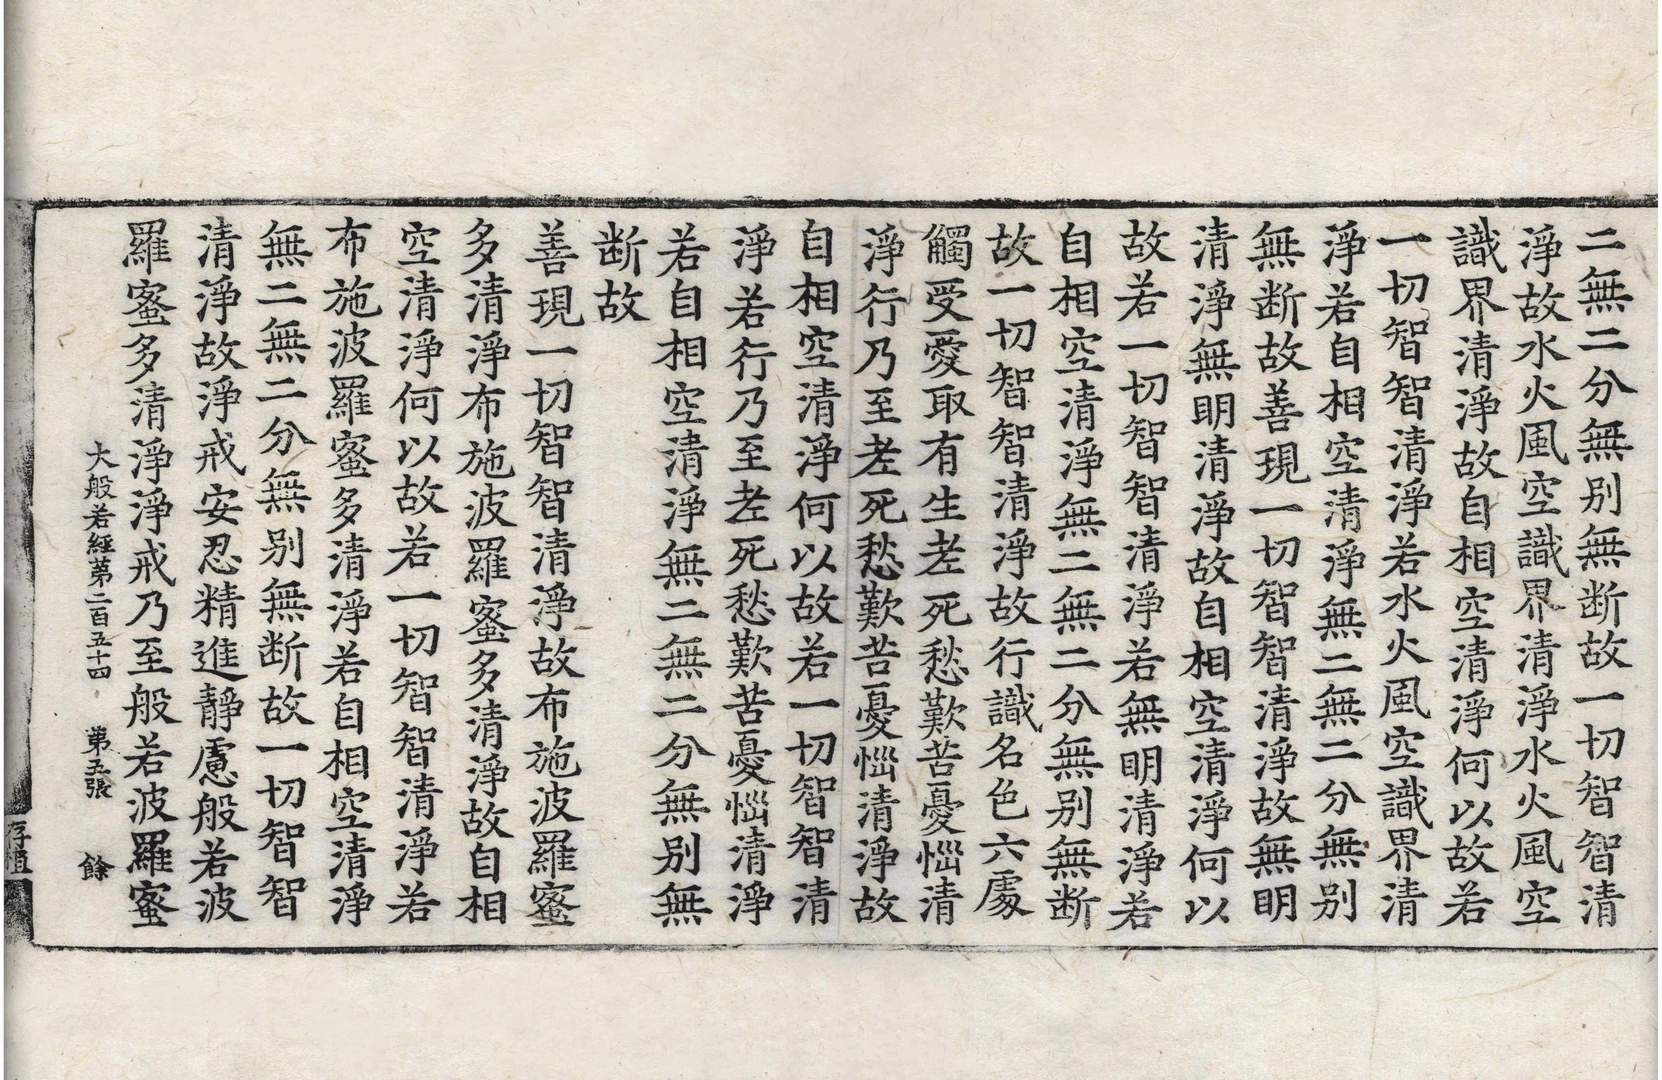 二無二分無別無断故一切智智清
淨故水火風空識界清淨水火風空
識界清淨故自相空清淨何以故若
一切智智清淨若水火風空識界清
淨若自相空清淨無二無二分無別
無断故善現一切智智清淨故無明
清淨無明清淨故自相空清淨何以
故若一切智智清淨若無明清淨若
自相空清淨無二無二分無別無断
故一切智智清淨故行識名色六處
觸受愛取有生老死愁歎苦憂惱清
淨行乃至老死愁歎苦憂惱清淨故
自相空清淨何以故若一切智智清
淨若行乃至老死愁歎苦憂惱清淨
若自相空清淨無二無二分無別無
断故
善現一切智智清淨故布施波羅蜜
多清淨布施波羅蜜多清淨故自相
空清淨何以故若一切智智清淨若
布施波羅蜜多清淨若自相空清淨
無二無二分無別無断故一切智智
清淨故淨戒安忍精進靜慮般若波
羅蜜多清淨淨戒乃至般若波羅蜜
大般若經第二百五十四 第五張 餘
存植